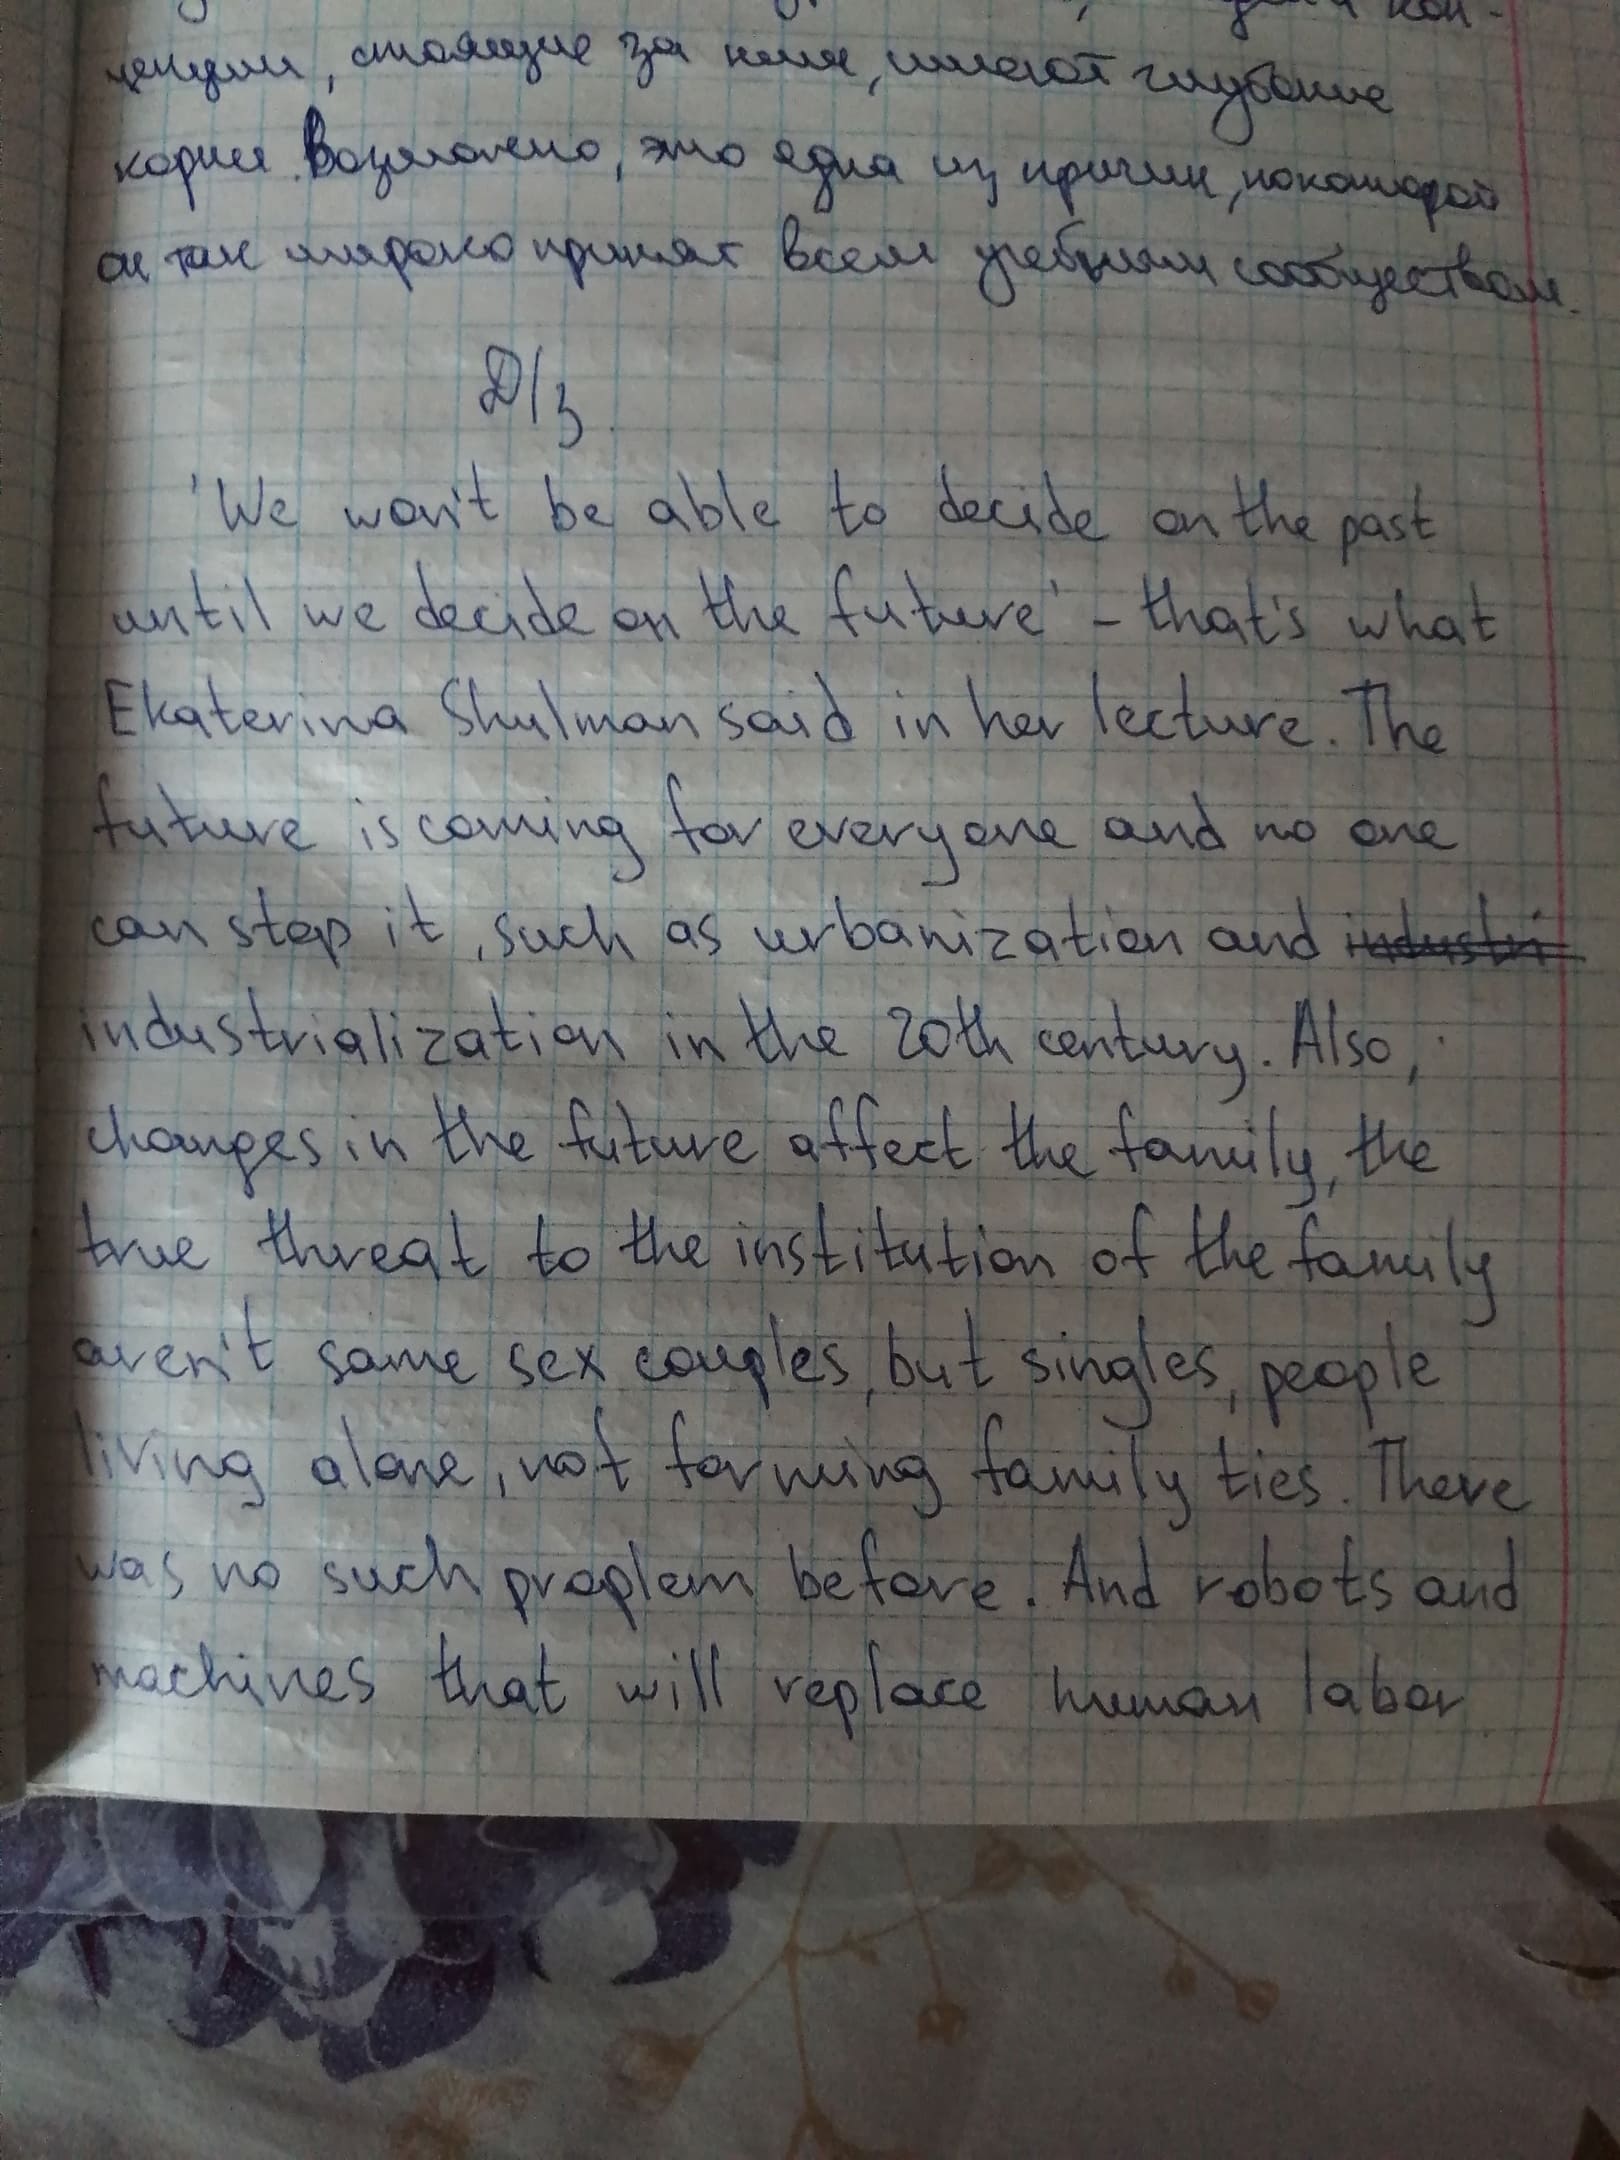 цепции, стоящие за ними, имеют глубокие
корни. Возможно, это одна из причин, по которой
он так широко принят всем учебным сообществом.
Д/з
'We won't be able to decide on the past
until we decide on the future' - that's what
Ekaterina Shulman said in her lecture. The
future is coming for everyone and no one
can stop it, such as urbanization and industri
industrialization in the 20th century. Also,
changes in the future affect the family, the
true threat to the institution of the family
aren't same sex couples, but singles, people
living alone, not forming family ties. There
was no such proplem before. And robots and
machines that will replace human labor